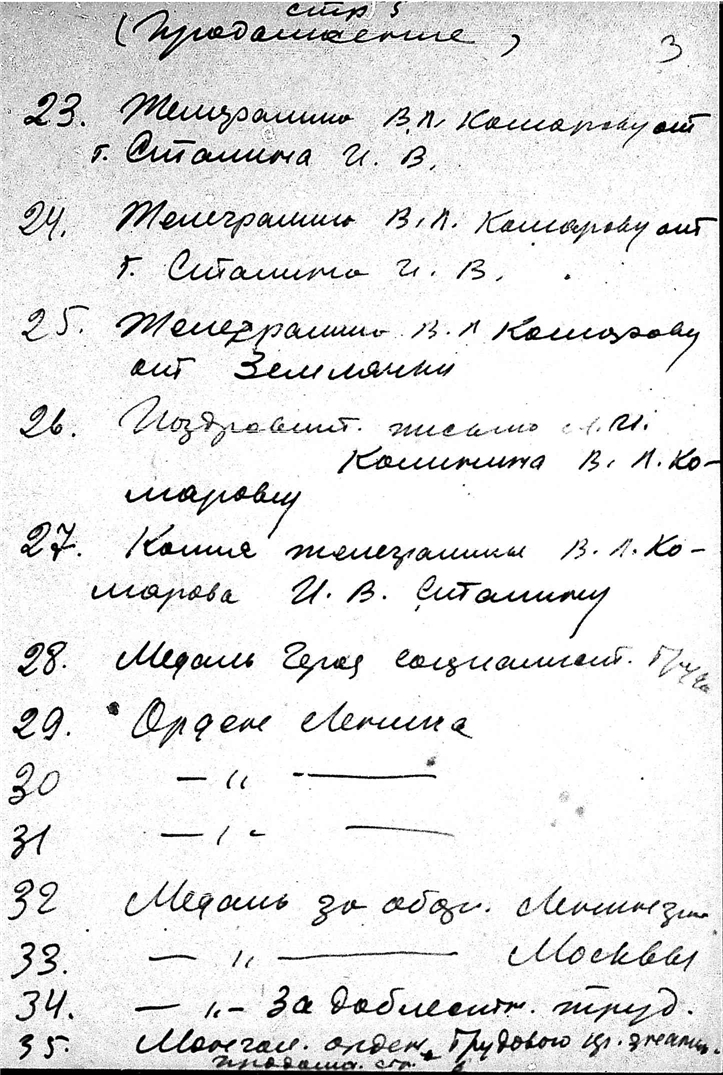 стр 5
(Продолжение)
3
23. Телеграмма В.Л. Комарову от
т. Сталина И. В.
24. Телеграмма В.Л. Комарову от
т. Сталина И. В.
25. Телеграмма В.Л Комарову
от Землячки
26. Поздравит. письмо М.И.
Калинина В. Л. Ко-
марову
27. Копия телеграммы В.Л. Ко-
марова И. В. Сталину
28. Медаль Героя социалист. Труда
29. Орден Ленина
30 — " ——
31 — " — ——
32 Медаль за обор. Ленинграда
33. — " —— Москвы
34. — " — За доблестн. труд.
35. Монгол. орден Трудового кр. знамени.
продолж. стр. 6